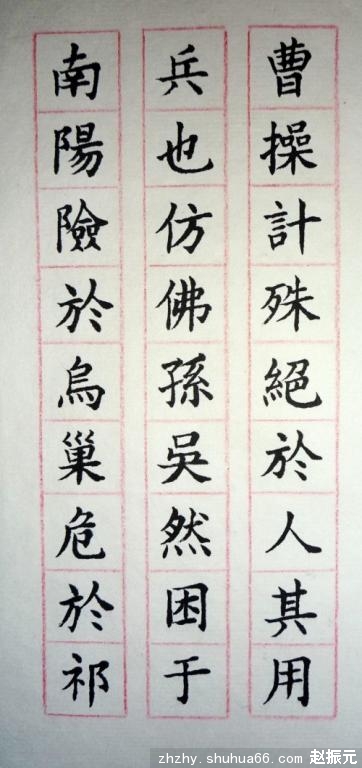 曹操計殊絕於人其用
兵也仿佛孫吳然困于
南陽險於烏巢危於祁
zhzhy.shuhua66.com 赵振元